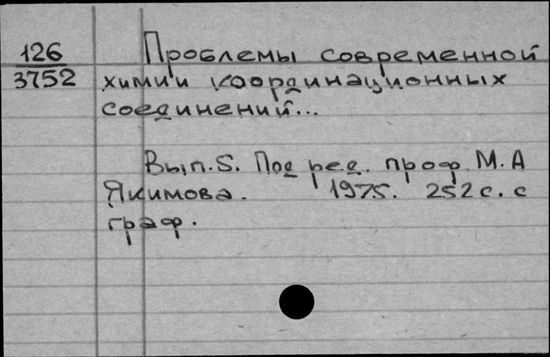 126 Проблемы современной
3752 химии координационных
соединений...
Вып. 5. Под ред. проф. М. А
Якимова. 1975. 252 с. с
граф.